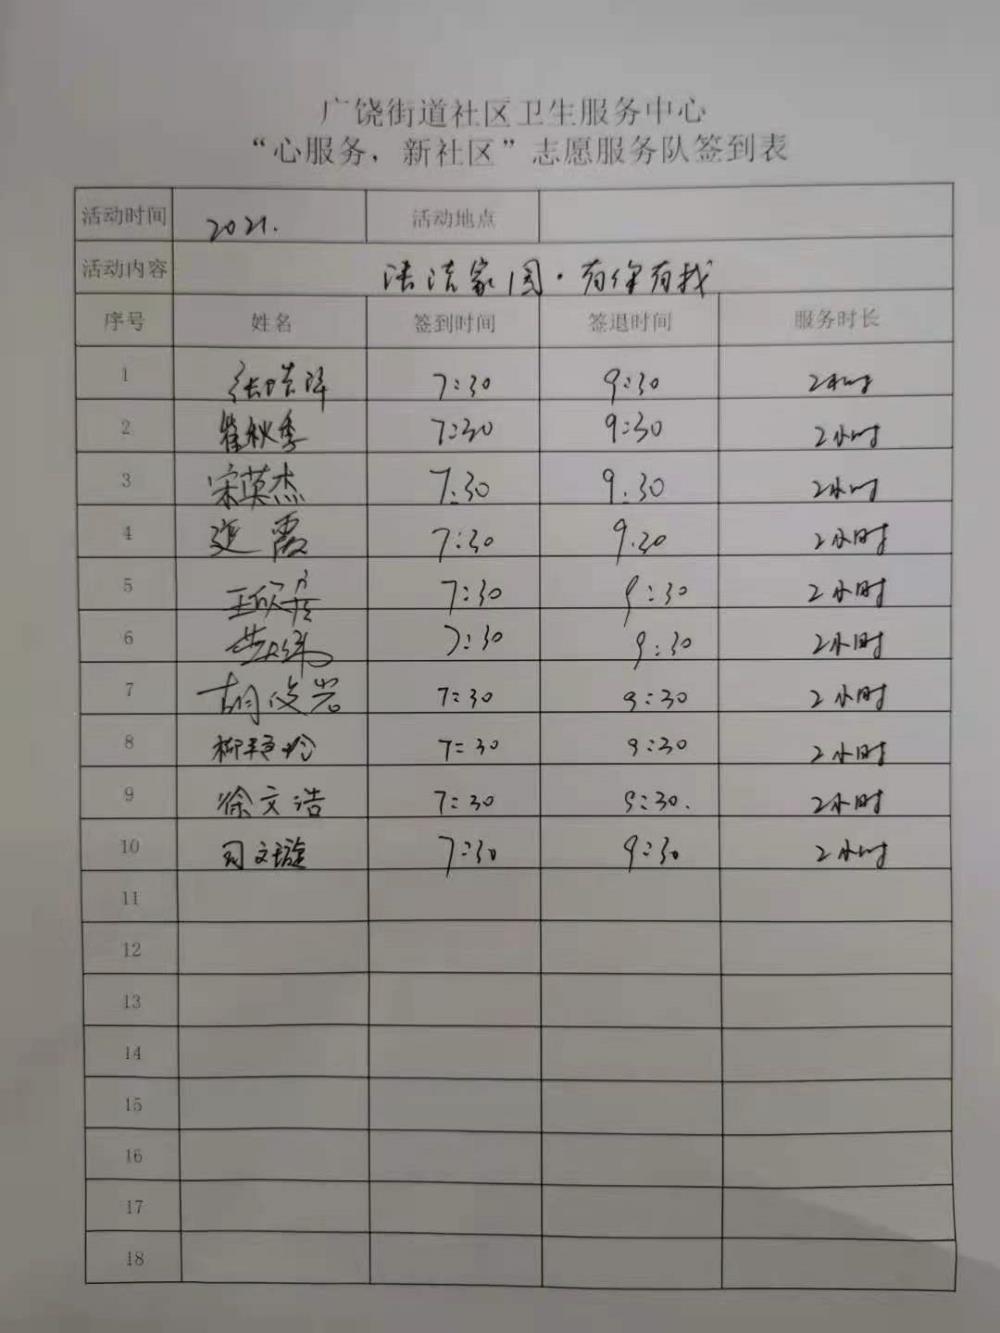 广饶街道社区卫生服务中心
“心服务，新社区”志愿服务队签到表
活动时间 2021. 活动地点
活动内容 清洁家园·有你有我
序号 姓名 签到时间 签退时间 服务时长
1 7:30 9:30 2小时
2 崔秋季 7:30 9:30 2小时
3 宋英杰 7:30 9.30 2小时
4 霞 7:30 9.30 2小时
5 7:30 9:30 2小时
6 7:30 9:30 2小时
7 胡俊岩 7:30 9:30 2小时
8 柳艳玲 7:30 9:30 2小时
9 徐文浩 7:30 9:30. 2小时
10 司文璇 7:30 9:30 2小时
11
12
13
14
15
16
17
18